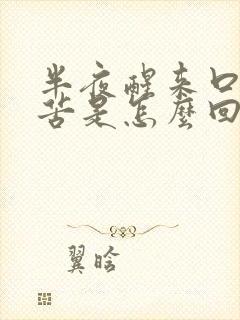 半夜醒来口
苦是怎麼回
翼晗